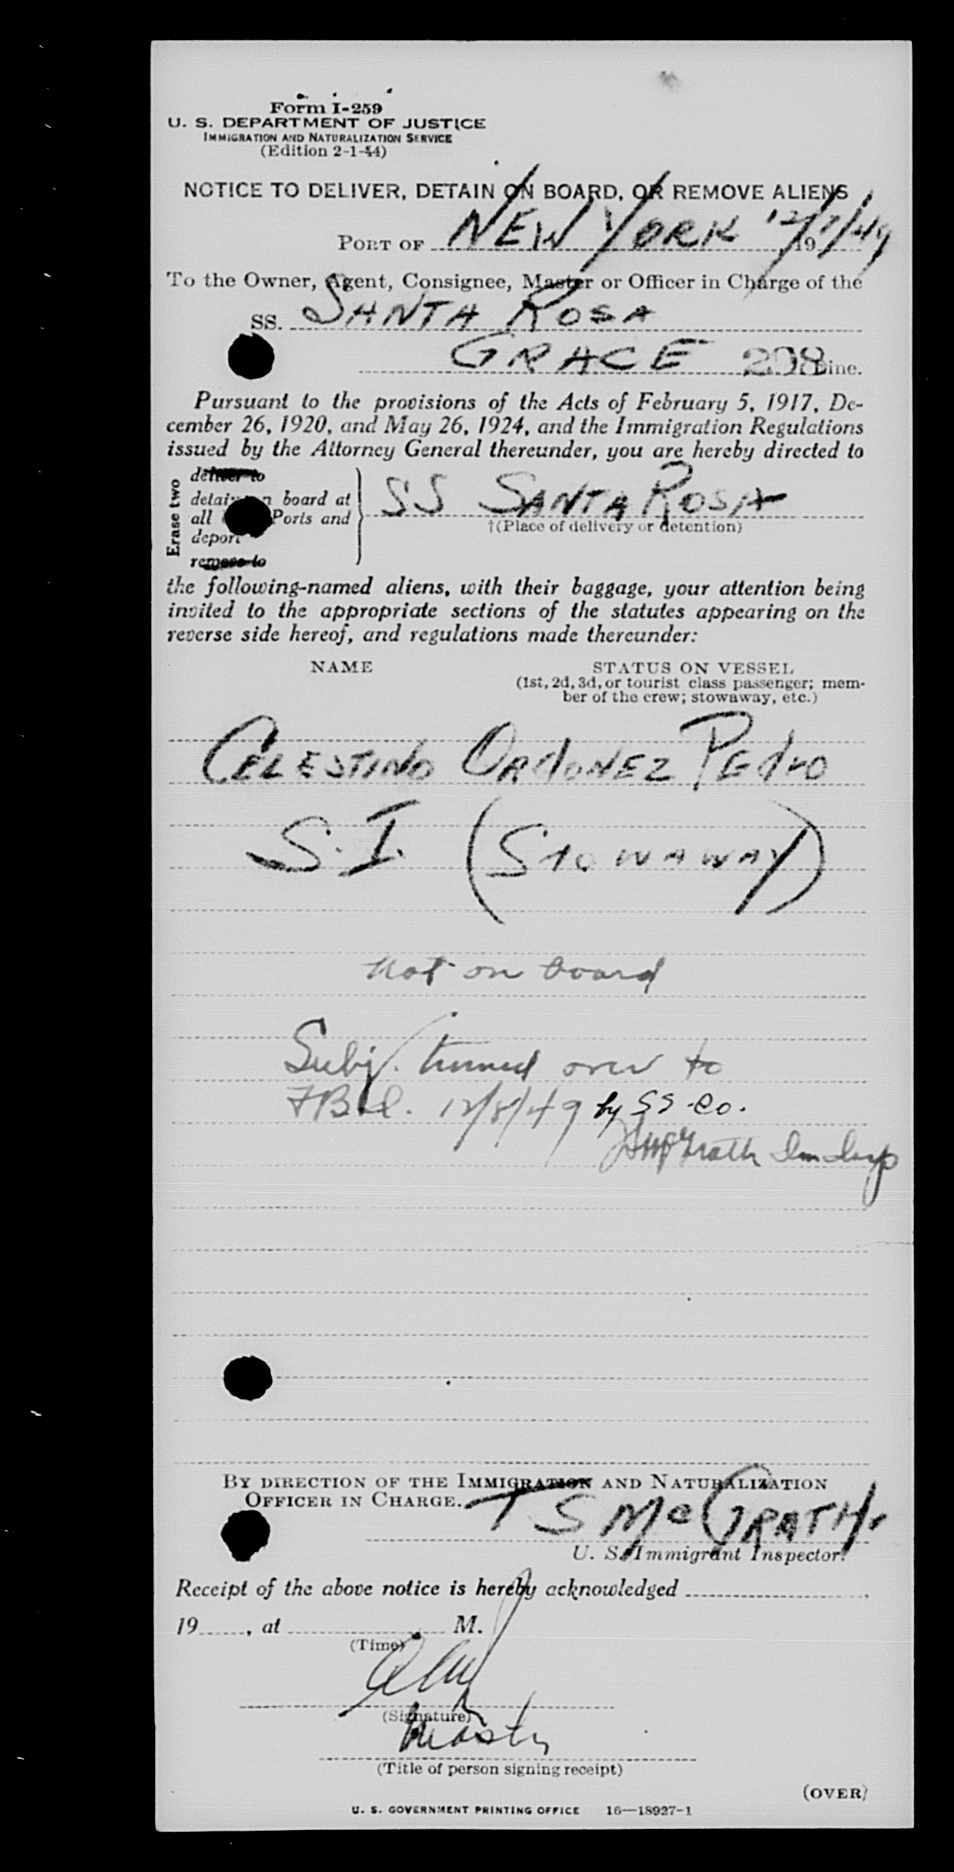 Form I-259
U. S. DEPARTMENT OF JUSTICE
IMMIGRATION AND NATURALIZATION SERVICE
(Edition 2-1-44)
NOTICE TO DELIVER, DETAIN ON BOARD, OR REMOVE ALIENS
PORT OF NEW YORK 12/7/49 19
To the Owner, Agent, Consignee, Master or Officer in Charge of the
SS. SANTA ROSA
GRACE 208 Line.
Pursuant to the provisions of the Acts of February 5, 1917, De-
cember 26, 1920, and May 26, 1924, and the Immigration Regulations
issued by the Attorney General thereunder, you are hereby directed to
Erase two
deliver to
detain on board at
all Ports and
deport
remove to
SS SANTA ROSA
†(Place of delivery or detention)
the following-named aliens, with their baggage, your attention being
invited to the appropriate sections of the statutes appearing on the
reverse side hereof, and regulations made thereunder:
NAME STATUS ON VESSEL
(1st, 2d, 3d, or tourist class passenger; mem-
ber of the crew; stowaway, etc.)
CELESTINO ORDONEZ PEdro
S.I. (STOWAWAY)
Not on board
Subj. turned over to
FBI. 12/8/49 by SS Co.
McGrath Im Insp
BY DIRECTION OF THE IMMIGRATION AND NATURALIZATION
OFFICER IN CHARGE.
T S McGRATH
U. S. Immigrant Inspector.
Receipt of the above notice is hereby acknowledged
19 , at M.
(Time)
(Signature)
Master
(Title of person signing receipt)
(OVER)
U. S. GOVERNMENT PRINTING OFFICE 16—18927-1